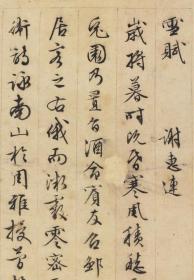 雪賦　謝惠連
歲將暮時既昏寒風積愁
兔園乃置旨酒命賓友召鄒
居客之右俄而微霰零密
衛詩詠南山於周雅授簡